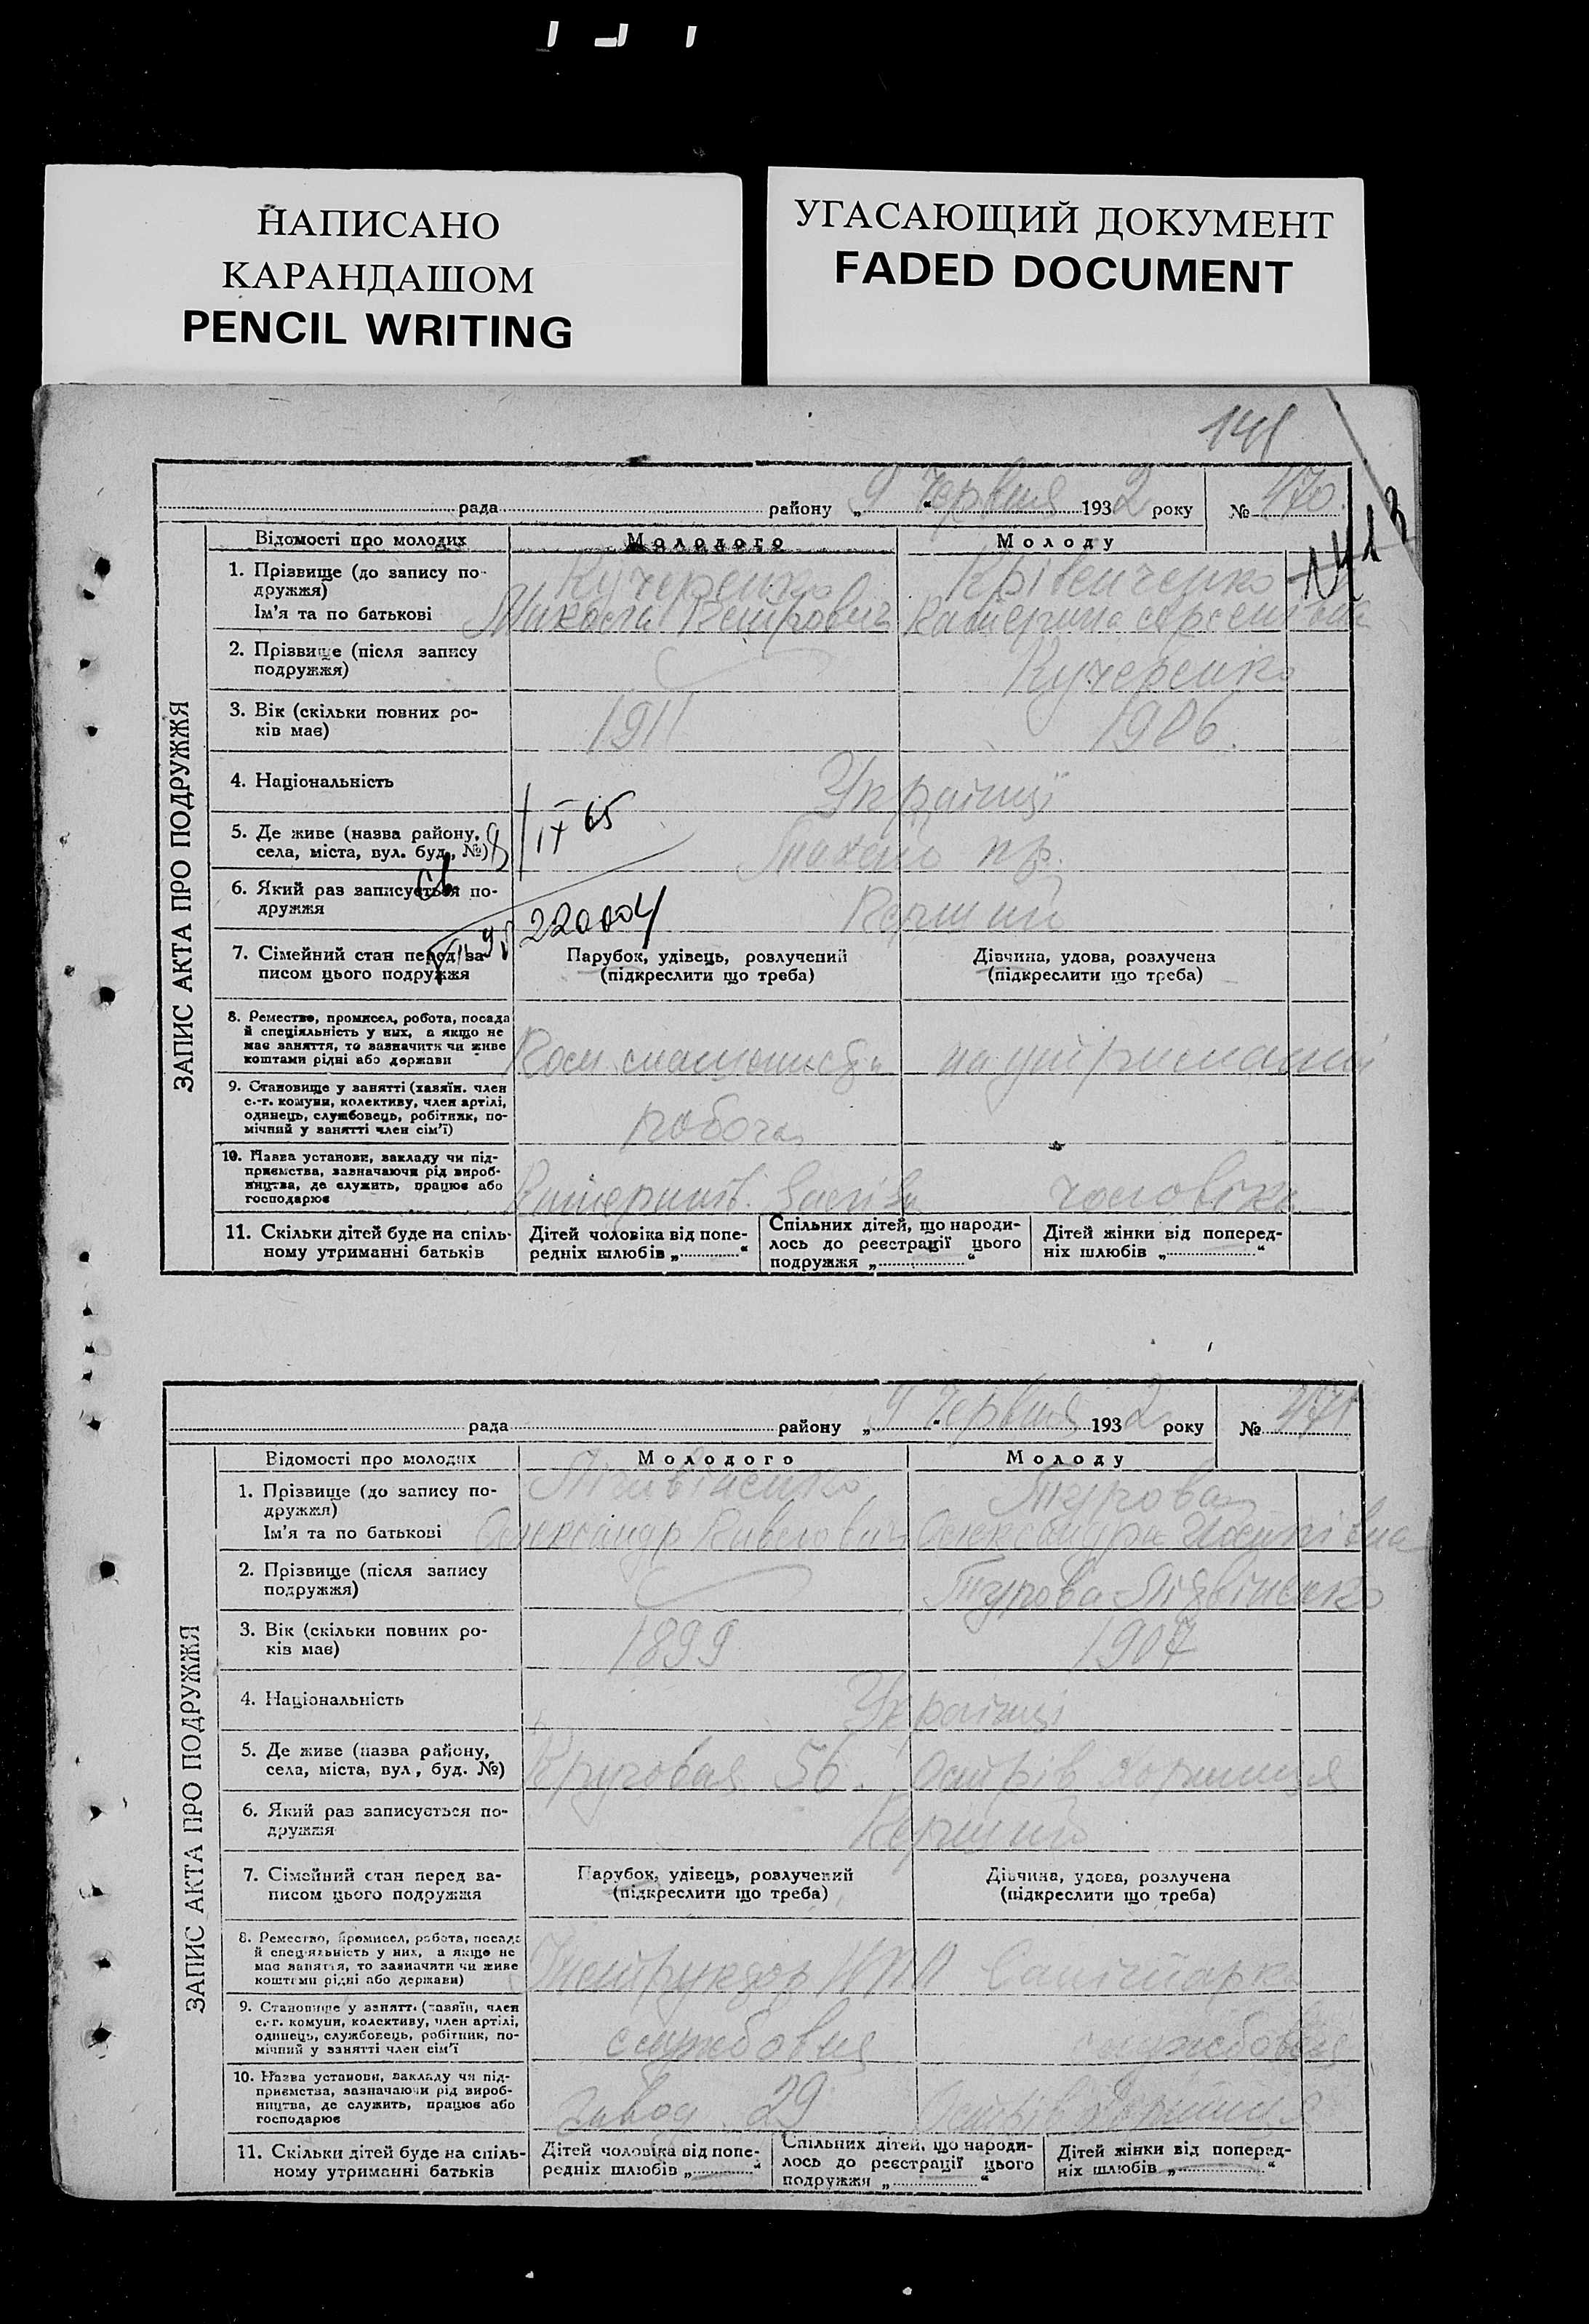 НАПИСАНО
КАРАНДАШОМ
PENCIL WRITING
УГАСАЮЩИЙ ДОКУМЕНТ
FADED DOCUMENT
ЗАПИС АКТА ПРО ПОДРУЖЖЯ
рада району „9“ Червня 1932 року № 470.
Відомості про молодих Молодого Молоду
1. Прізвище (до запису по- Кучеренко
дружжя)
Ім'я та по батькові Микола Петрович Катерина
2. Прізвище (після запису Кучеренко
подружжя)
3. Вік (скільки повних ро- 1911 1906.
ків має)
4. Національність Українці
5. Де живе (назва району,
села, міста, вул. буд., №)
6. Який раз записується по- Перший
дружжя
22004
7. Сімейний стан перед за- Парубок, удівець, розлучений Дівчина, удова, розлучена
писом цього подружжя (підкреслити що треба) (підкреслити що треба)
8. Ремество, промисел, робота, посада
й спеціяльність у них, а якщо не
має заняття, то зазначити чи живе на утриманні
коштами рідні або держави
9. Становище у занятті (хазяїн. член
с.-г. комуни, колективу, член артілі,
одинець, службовець, робітник, по- робоча
мічний у занятті член сім'ї)
10. Назва установи, закладу чи під-
приємства, зазначаючи рід вироб-
ництва, де служить, працює або чоловіка
господарює
11. Скільки дітей буде на спіль- Дітей чоловіка від попе- Спільних дітей, що народи- Дітей жінки від поперед-
ному утриманні батьків редніх шлюбів „ “ лось до реєстрації цього ніх шлюбів „ “
подружжя „ “
ЗАПИС АКТА ПРО ПОДРУЖЖЯ
рада району „9“ Червня 1932 року № 471
Відомості про молодих Молодого Молоду
1. Прізвище (до запису по- Турова
дружжя)
Ім'я та по батькові Олександр Павлович Олександра
2. Прізвище (після запису Турова
подружжя)
3. Вік (скільки повних ро- 1899 1907
ків має)
4. Національність Українці
5. Де живе (назва району,
села, міста, вул, буд. №) Кругова 56. Острів
6. Який раз записується по- Перший
дружжя
7. Сімейний стан перед за- Парубок, удівець, розлучений Дівчина, удова, розлучена
писом цього подружжя (підкреслити що треба) (підкреслити що треба)
8. Ремество, промисел, робота, посада
й спеціяльність у них, а якщо не
має заняття, то зазначити чи живе Інструктор Санітарка
коштами рідні або держави)
9. Становище у занятті (хазяїн, член
с.-г. комуни, колективу, член артілі,
одинець, службовець, робітник, по- службовця службовця
мічний у занятті член сім'ї
10. Назва установи, закладу чи під-
приємства, зазначаючи рід вироб-
ництва, де служить, працює або Завод 29 Острів
господарює
11. Скільки дітей буде на спіль- Дітей чоловіка від попе- Спільних дітей, що народи- Дітей жінки від поперед-
ному утриманні батьків редніх шлюбів „ “ лось до реєстрації цього ніх шлюбів „ “
подружжя „ “